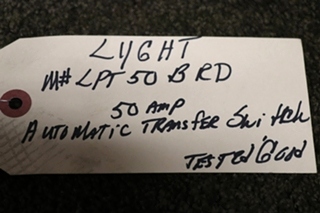 LYGHT
M# LPT 50 BRD
50 AMP
AUTOMATIC TRANSFER SWITCH
TESTED GOOD